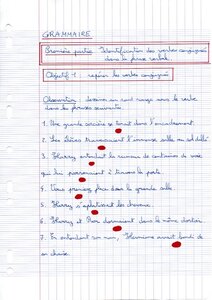 GRAMMAIRE
Première partie : Identification des verbes conjugués
dans la phrase verbale.
Objectif 1 : repérer les verbes conjugués
Observation : dessine un rond rouge sous le verbe
dans les phrases suivantes.
1. Une grande sorcière se tenait dans l'encadrement.
2. Les élèves traversaient l'immense salle au sol dallé
3. Harry entendait la rumeur de centaines de voix
qui lui parvenaient à travers la porte.
4. Vous prenez place dans la grande salle.
5. Harry s'aplatissait les cheveux.
6. Harry et Ron dormaient dans le même dortoir
7. En entendant son nom, Hermione avait bondi de
sa chaise.